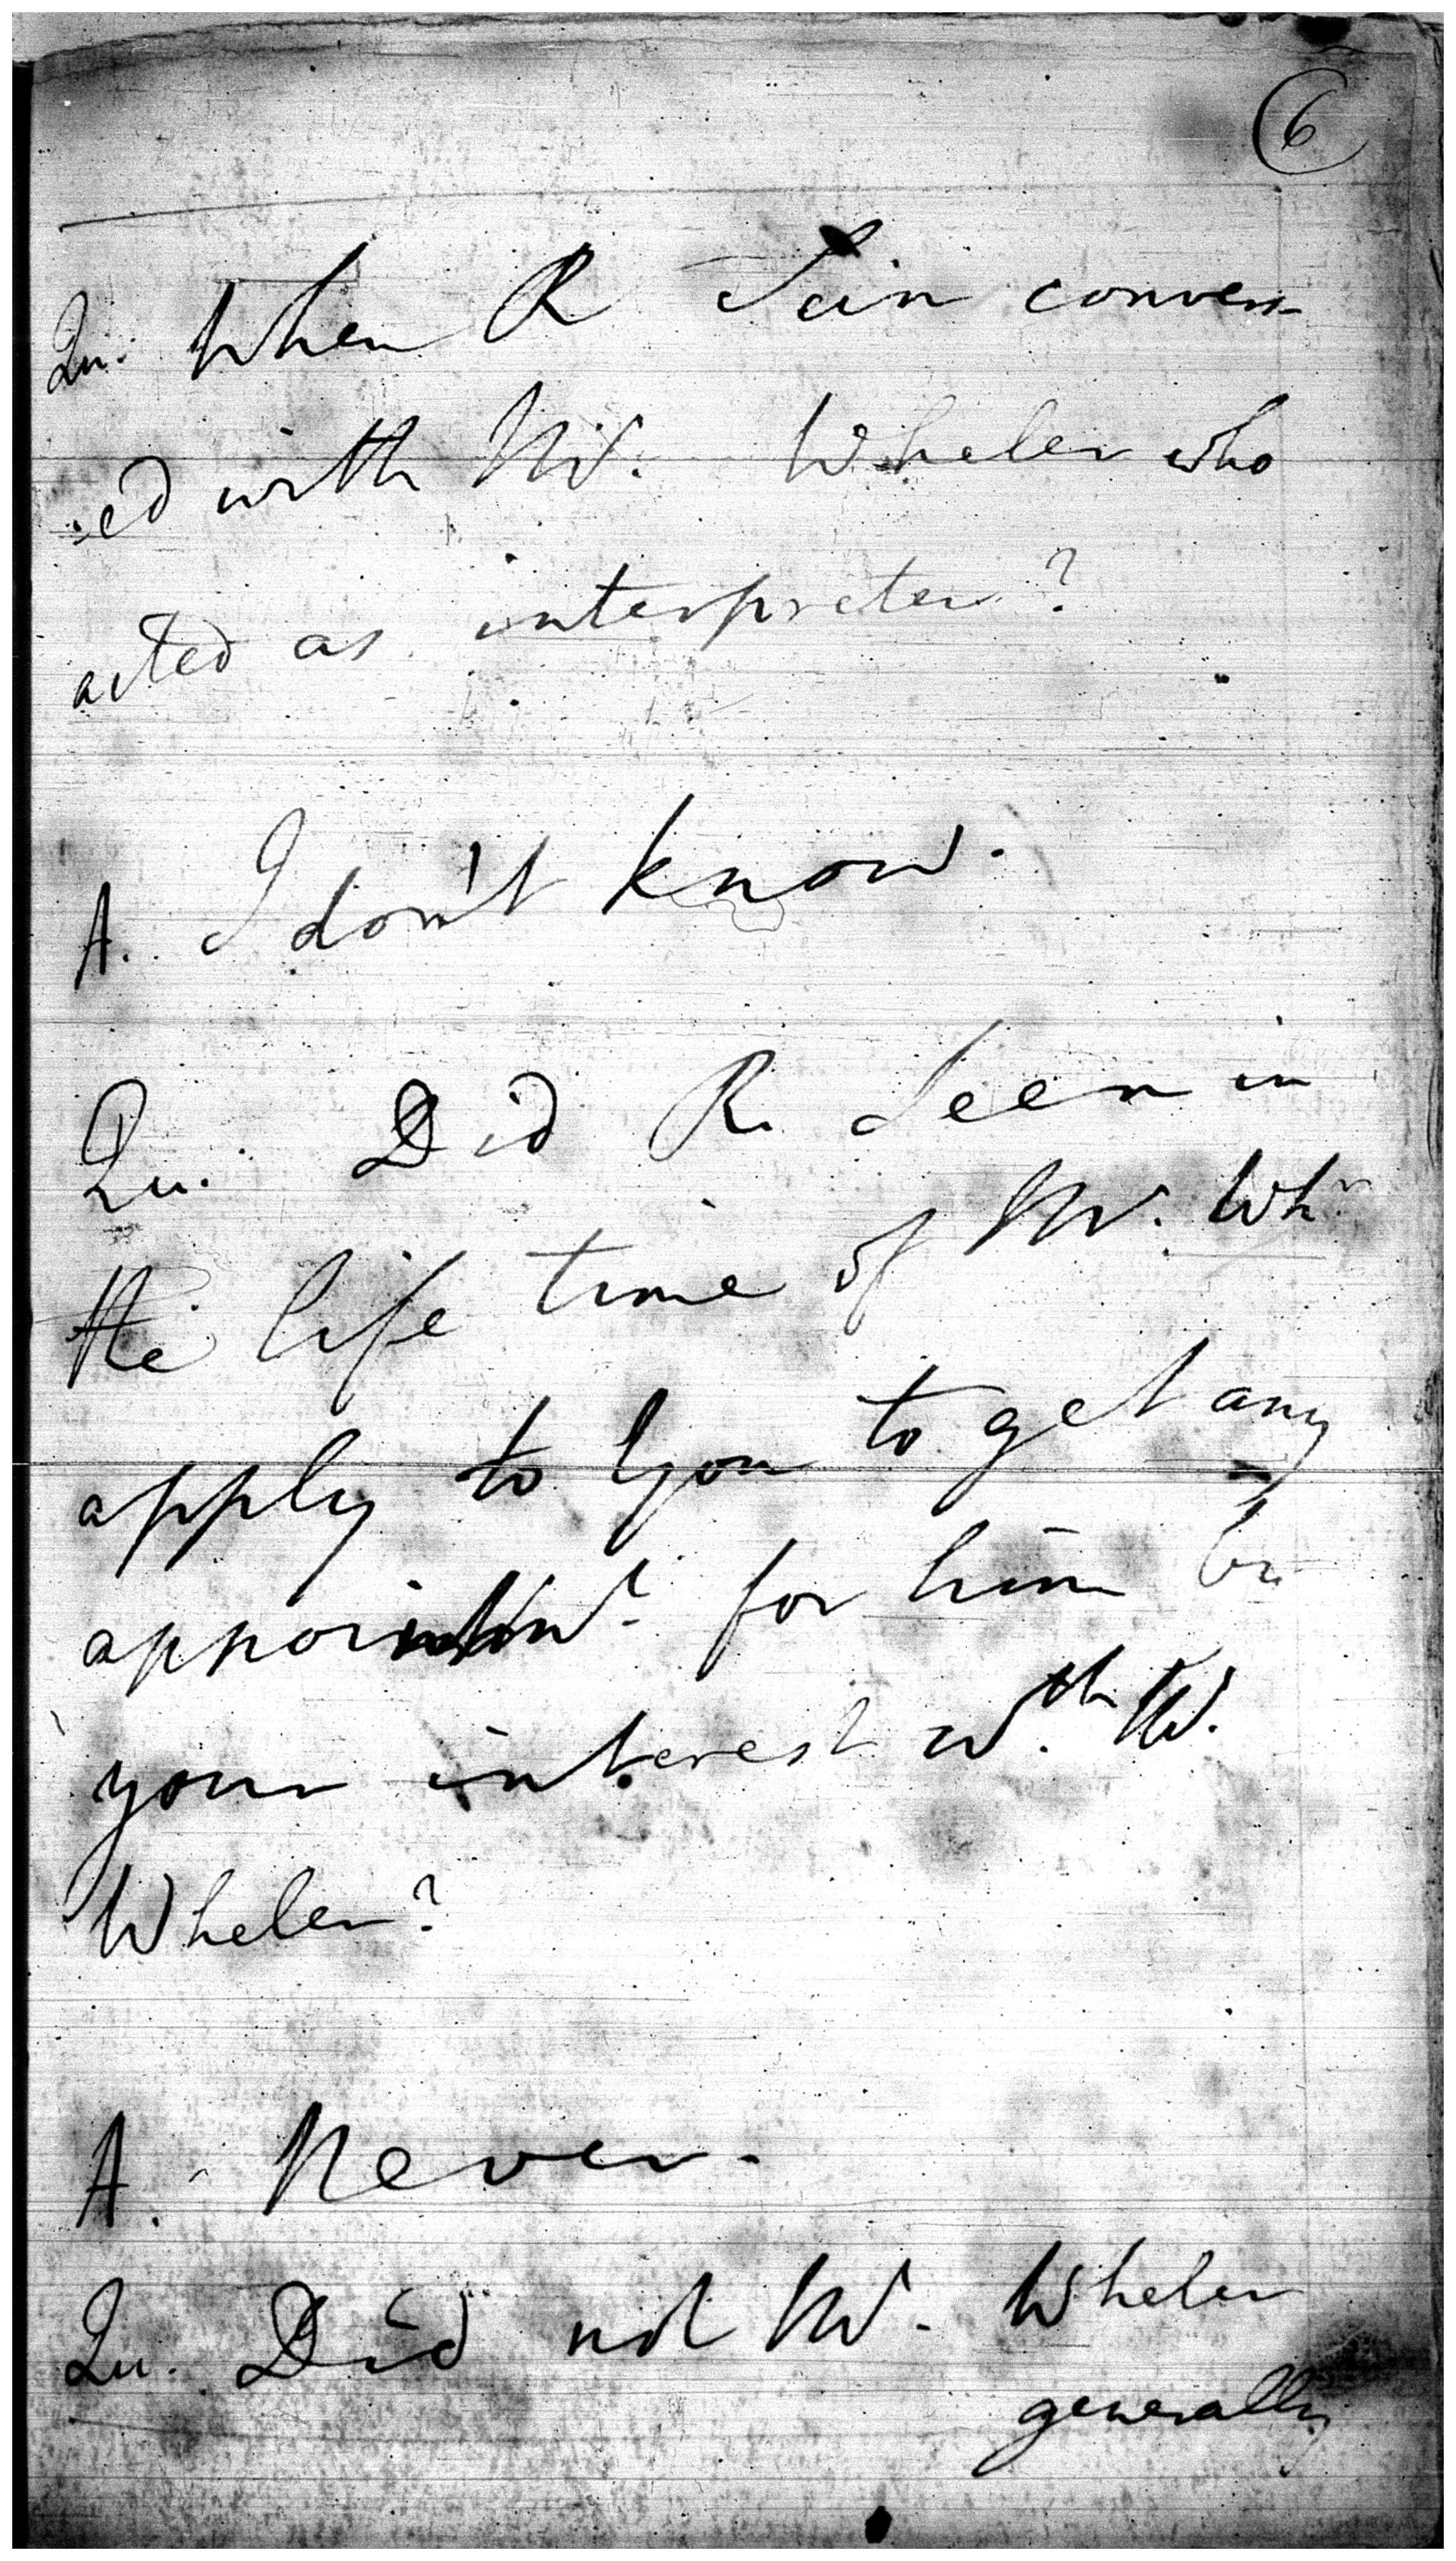 6
Qu. When R Sein convers-
:ed with Mr. Wheler who
acted as interpreter?
A. I don't know.
Qu. Did R. Seen in
the life time of Mr. Whr
apply to you to get any
appointmt. for him by
your interest wth. Mr.
Wheler?
A. Never.
Qu. Did not Mr. Wheler
generally